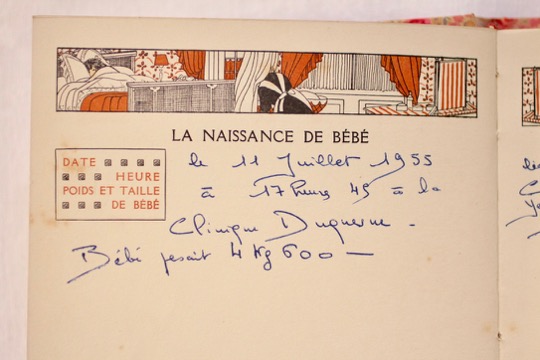 LA NAISSANCE DE BÉBÉ
DATE
HEURE
POIDS ET TAILLE
DE BÉBÉ
le 11 Juillet 1955
à 17 heures 45 à la
Clinique
Bébé pesait 4 Kg 600 —